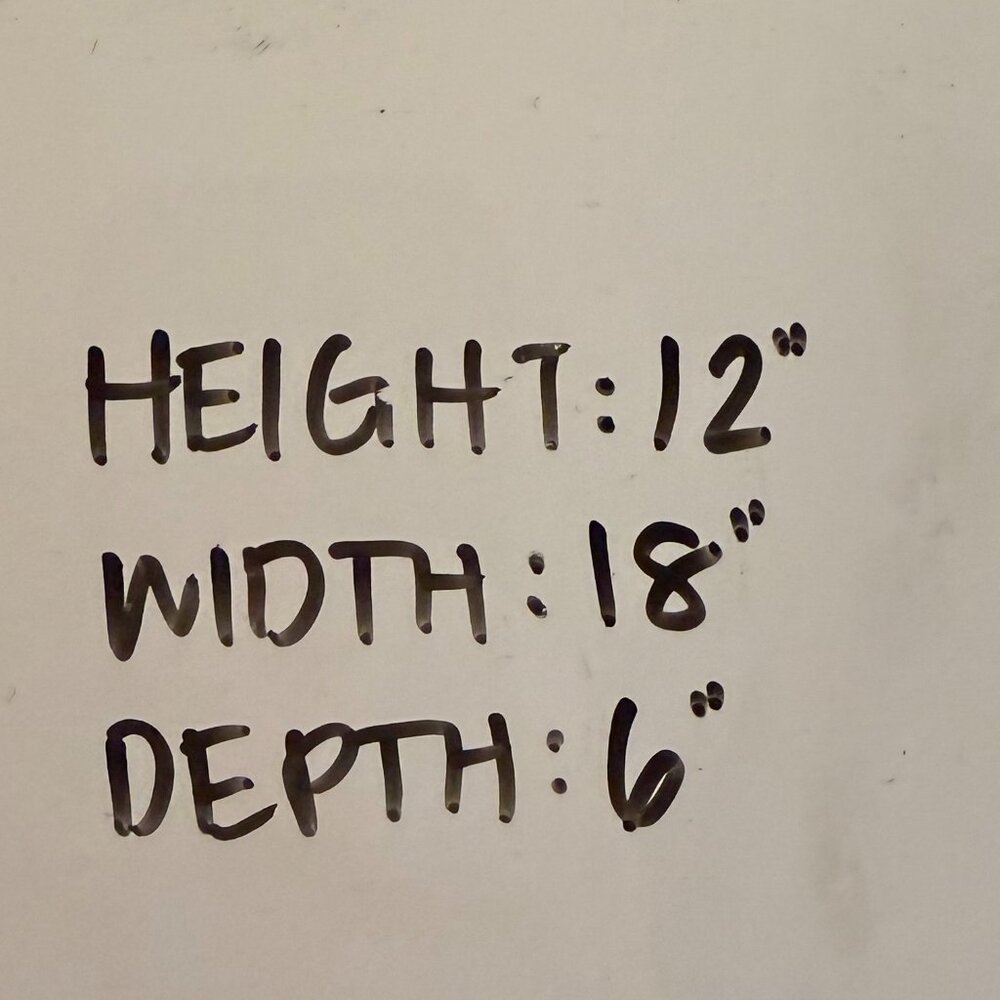 HEIGHT: 12"
WIDTH: 18"
DEPTH: 6"